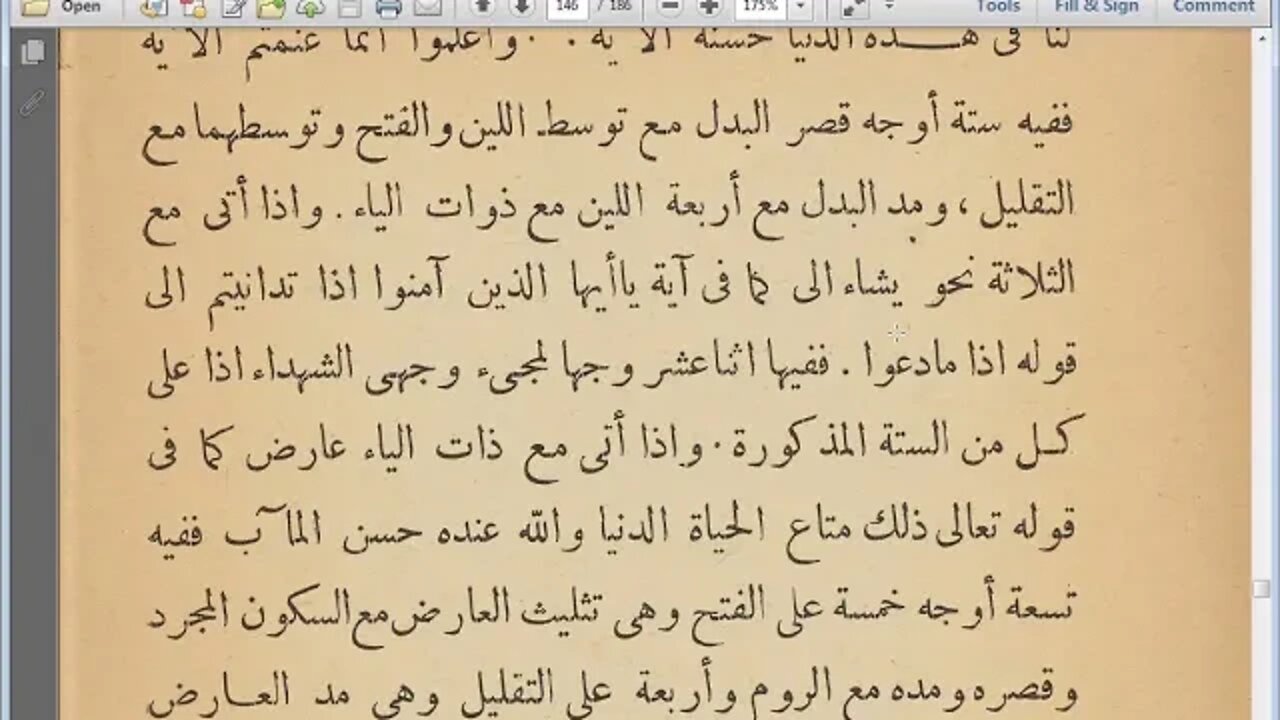 Open 146 / 186 175% Tools Fill & Sign Comment
لنا فى هـــذه الدنيا حسنة الآية . . واعلموا أنما غنمتم الآية
ففيه ستة أوجه قصر البدل مع توسط اللين والفتح وتوسطهما مع
التقليل ، ومد البدل مع أربعة اللين مع ذوات الياء . واذا أتى مع
الثلاثة نحو يشاء الى كما فى آية ياأيها الذين آمنوا اذا تداينتم الى
قوله اذا مادعوا . ففيها اثناعشر وجها لمجىء وجهى الشهداء اذا على
كـل من الستة المذكورة . واذا أتى مع ذات الياء عارض كما فى
قوله تعالى ذلك متاع الحياة الدنيا والله عنده حسن المآب ففيه
تسعة أوجه خمسة على الفتح وهى تثليث العارض مع السكون المجرد
وقصره ومده مع الروم وأربعة على التقليل وهى مد العـارض